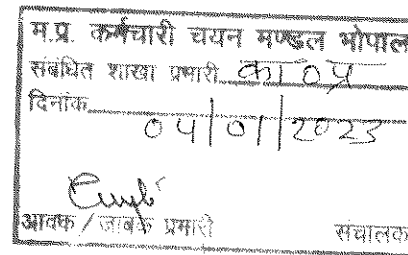 म.प्र. कर्मचारी चयन मण्डल भोपाल
संबंधित शाखा प्रभारी का०प्र
दिनांक
04/01/2023
आवक / जावक प्रभारी संचालक